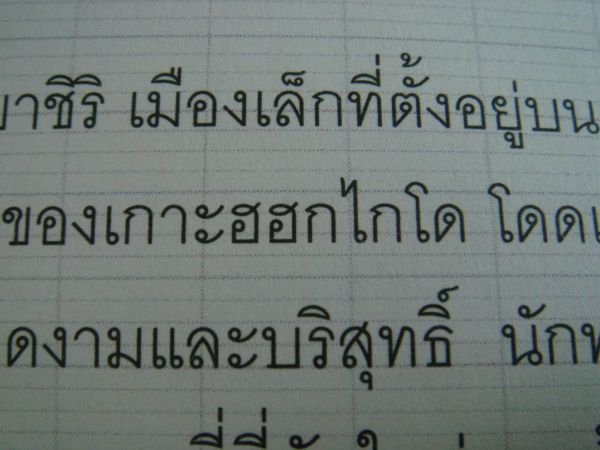 าชิริ เมืองเล็กที่ตั้งอยู่บน
ของเกาะฮฮกไกโด โดด
ดงามและบริสุทธิ์ นัก